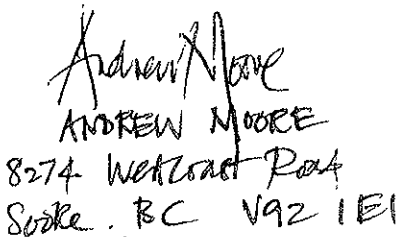 Andrew Moore
ANDREW MOORE
8274 West Coast Road
Sooke. BC V9Z 1E1